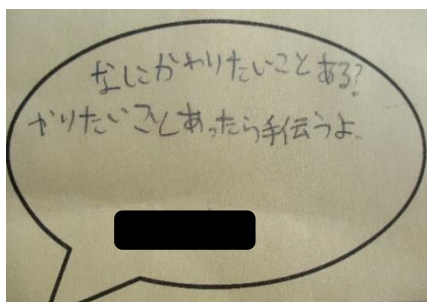 なにかやりたいことある?
やりたいことあったら手伝うよ。